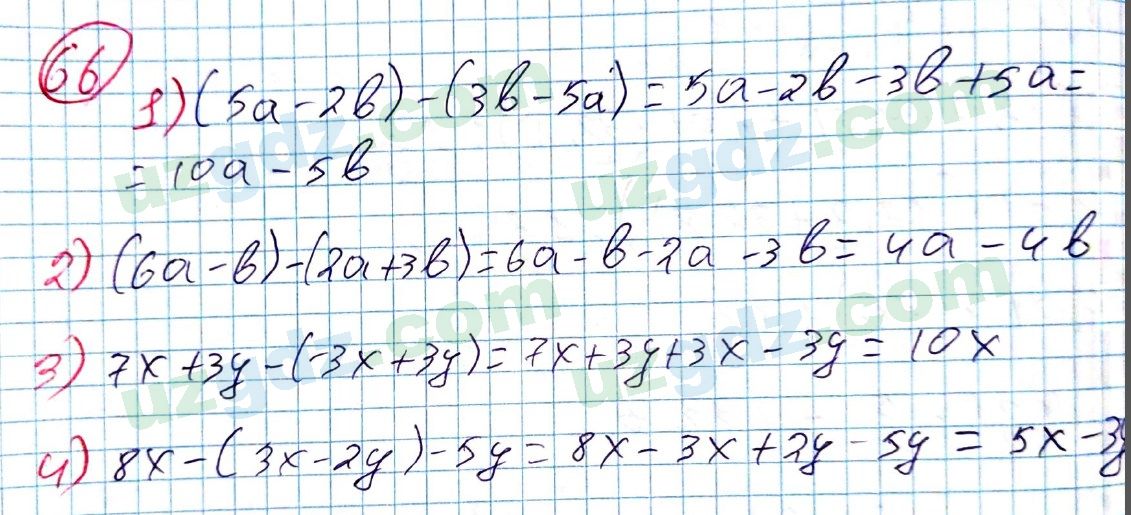 66
1) (5a - 2b) - (3b - 5a) = 5a - 2b - 3b + 5a =
= 10a - 5b
2) (6a - b) - (2a + 3b) = 6a - b - 2a - 3b = 4a - 4b
3) 7x + 3y - (-3x + 3y) = 7x + 3y + 3x - 3y = 10x
4) 8x - (3x - 2y) - 5y = 8x - 3x + 2y - 5y = 5x - 3y
uzgdz.com
uzgdz.com
uzgdz.com
uzgdz.com